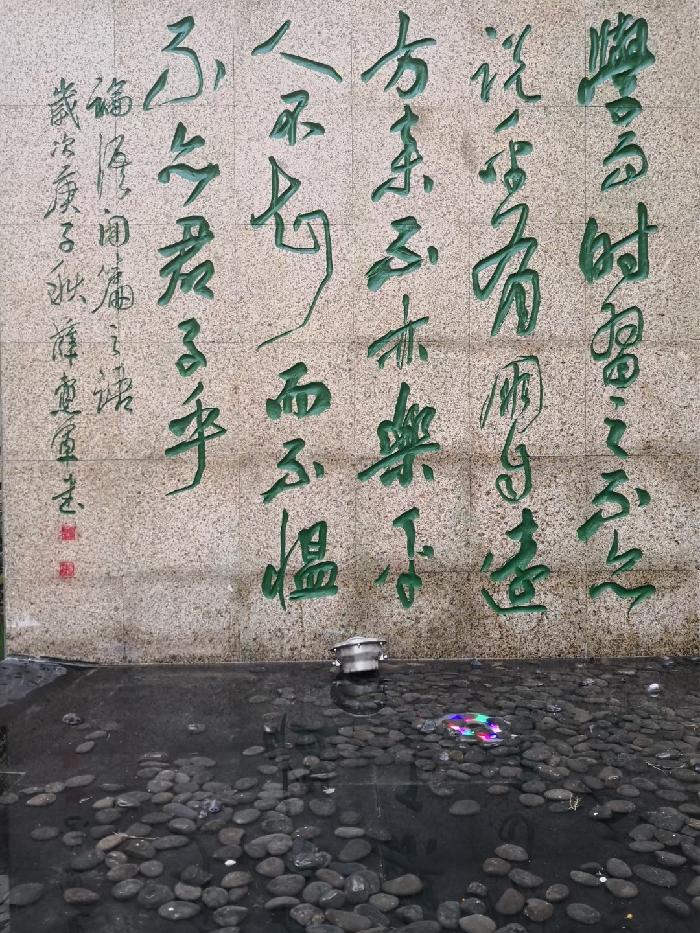 學而时習之不亦
说乎有朋自遠
方来不亦樂乎
人不知而不愠
不亦君子乎
論語開篇之語
歲次庚子秋薛軍书